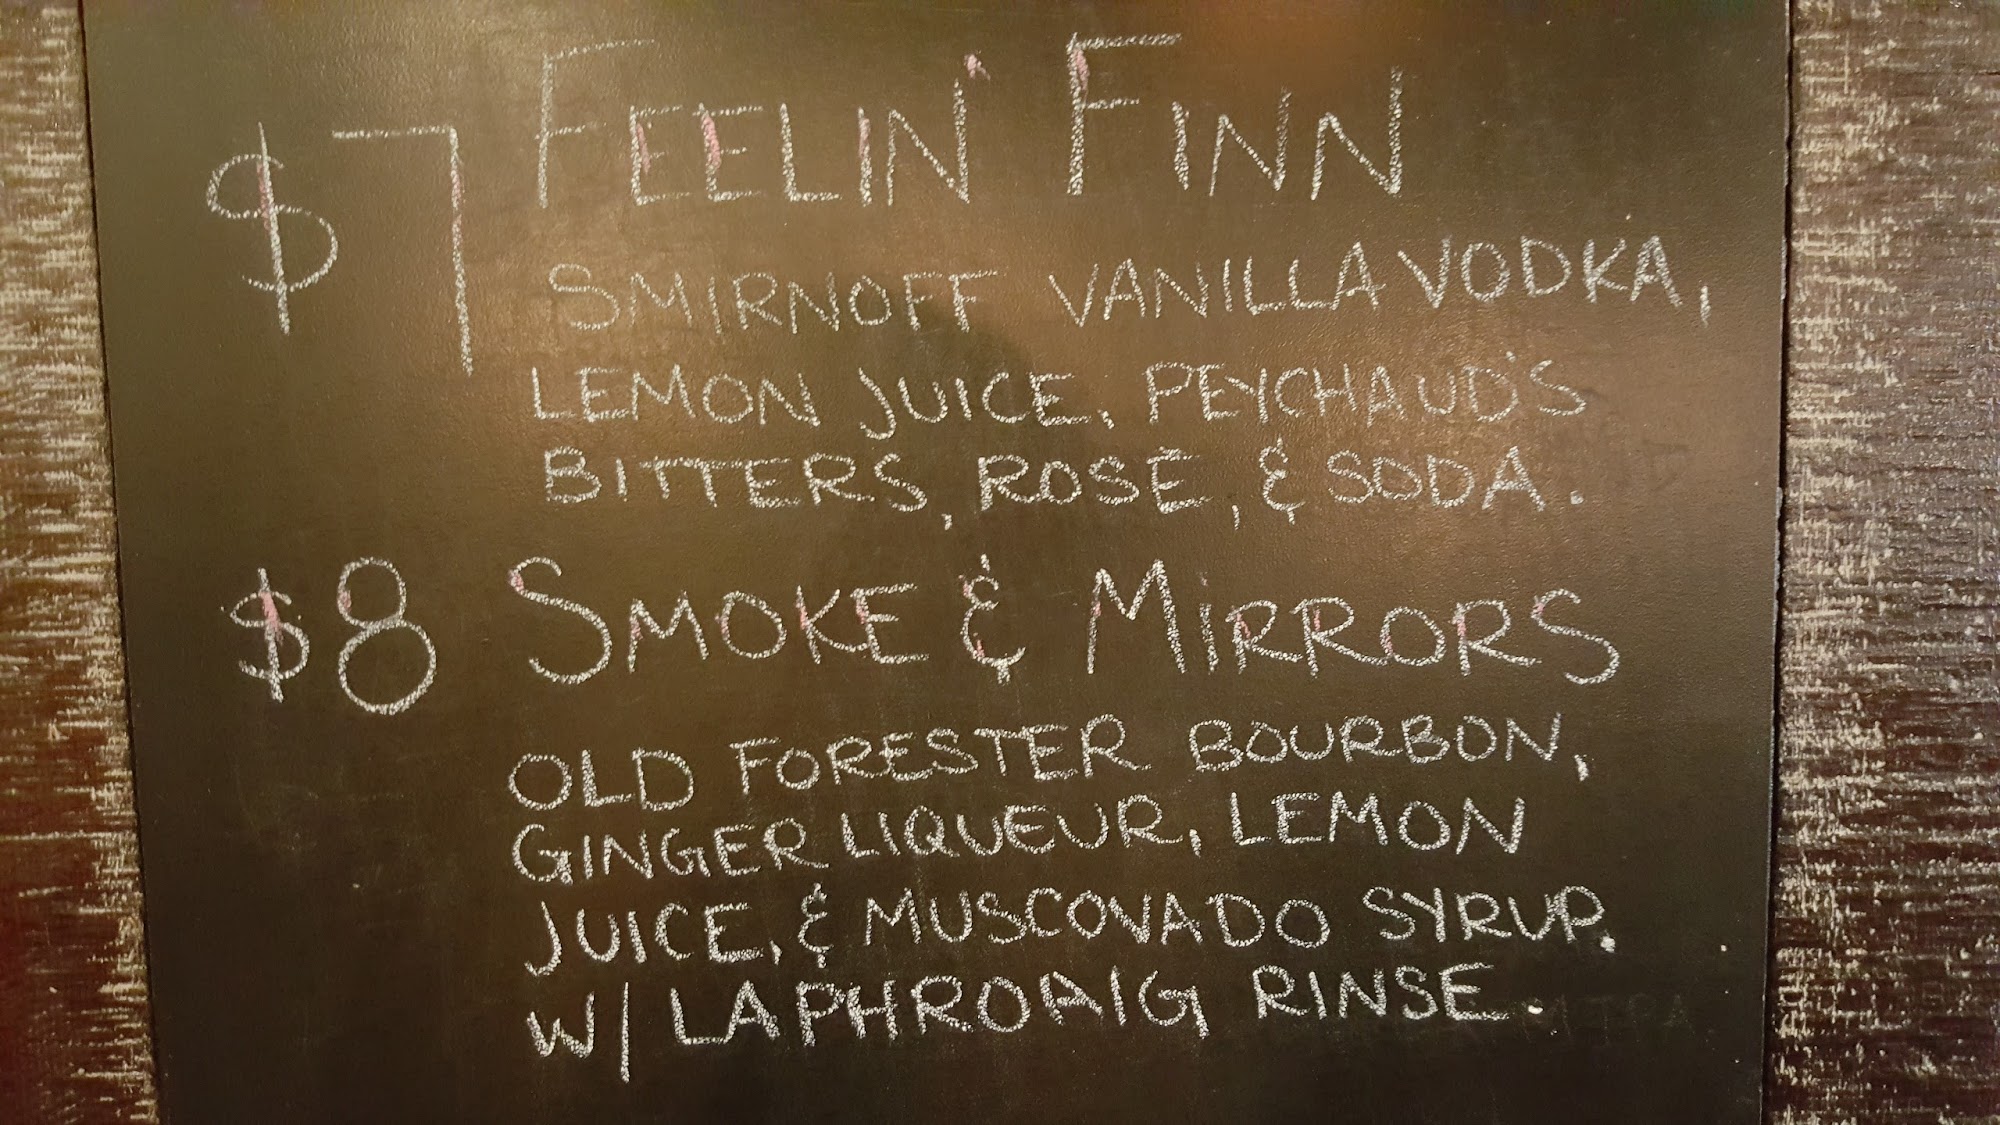 $7 FEELIN' FINN
SMIRNOFF VANILLA VODKA,
LEMON JUICE, PEYCHAUD'S
BITTERS, ROSE, & SODA.
$8 SMOKE & MiRRORS
OLD FORESTER BOURBON,
GINGER LIQUEUR, LEMON
JUICE, & MUSCOVADO SYRUP.
W/ LAPHROAIG RINSE.